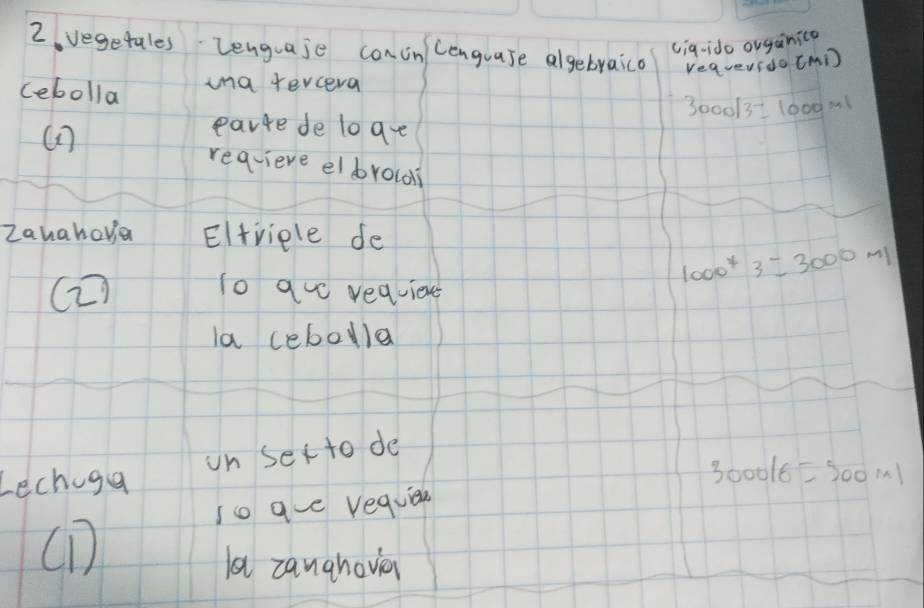 2. vegetales Lenguaje común Lenguaje algebraico Liquido organico
requerido (ml)
cebolla una tercera 3000/3 = 1000 ml
parte de lo que
requiere el brocoli
zanahoria El triple de
1000 * 3 = 3000 ml
(2) lo que requiere
la cebolla
Lechuga un sexto de 3000/6 = 500 ml
lo que requiere
(1) la zanahoria